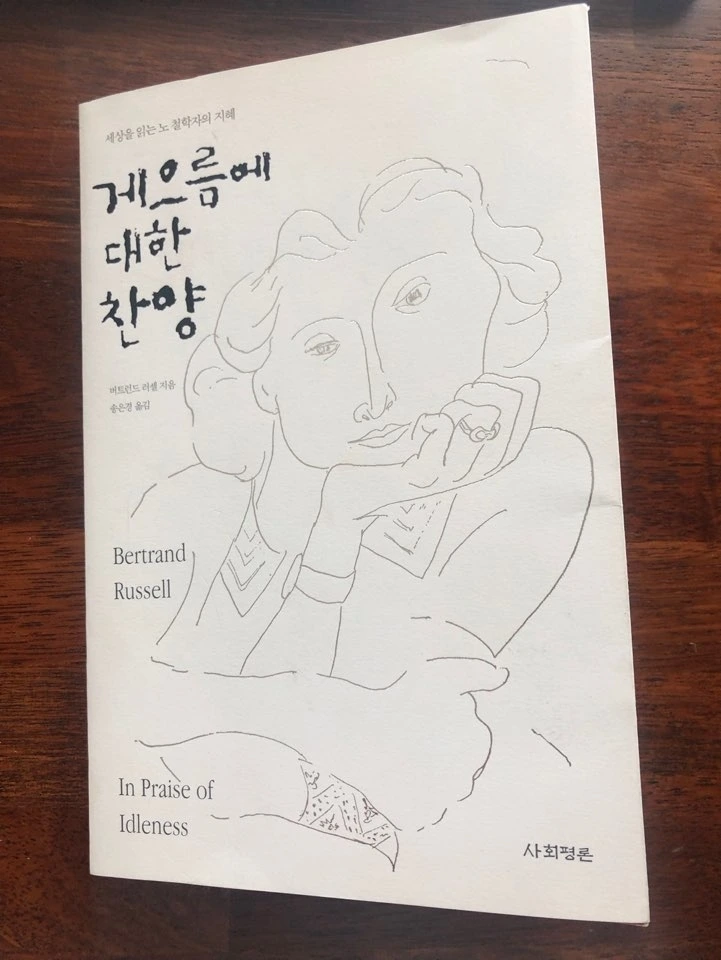 세상을 읽는 노 철학자의 지혜
게으름에
대한
찬양
버트런드 러셀 지음
송은경 옮김
Bertrand
Russell
In Praise of
Idleness
사회평론